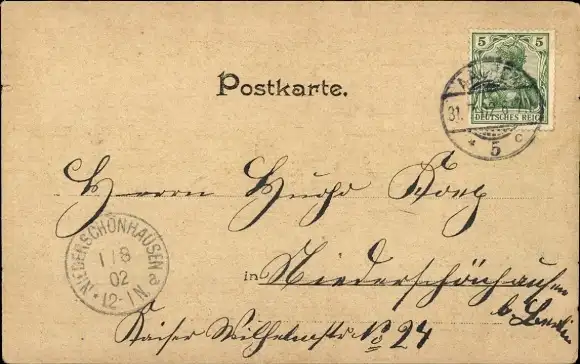 5 5
DEUTSCHES REICH
31.7.02
* 5 c
Postkarte.
Herrn Hugo
in Niederschönhausen
b. Berlin
Kaiser Wilhelmstr No 24
NIEDERSCHÖNHAUSEN a
1/8
02
12-1N.